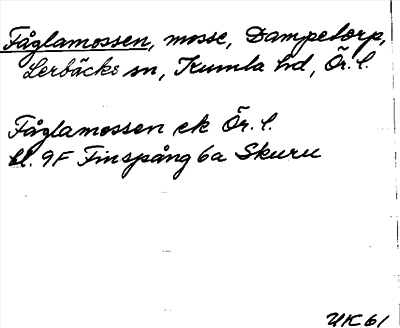 Fåglamossen, mosse, Dampetorp,
Lerbäcks sn, Kumla hd, Ör. l.
Fåglamossen ek Ör. l.
bl. 9F Finspång 6a Skuru
UK 61